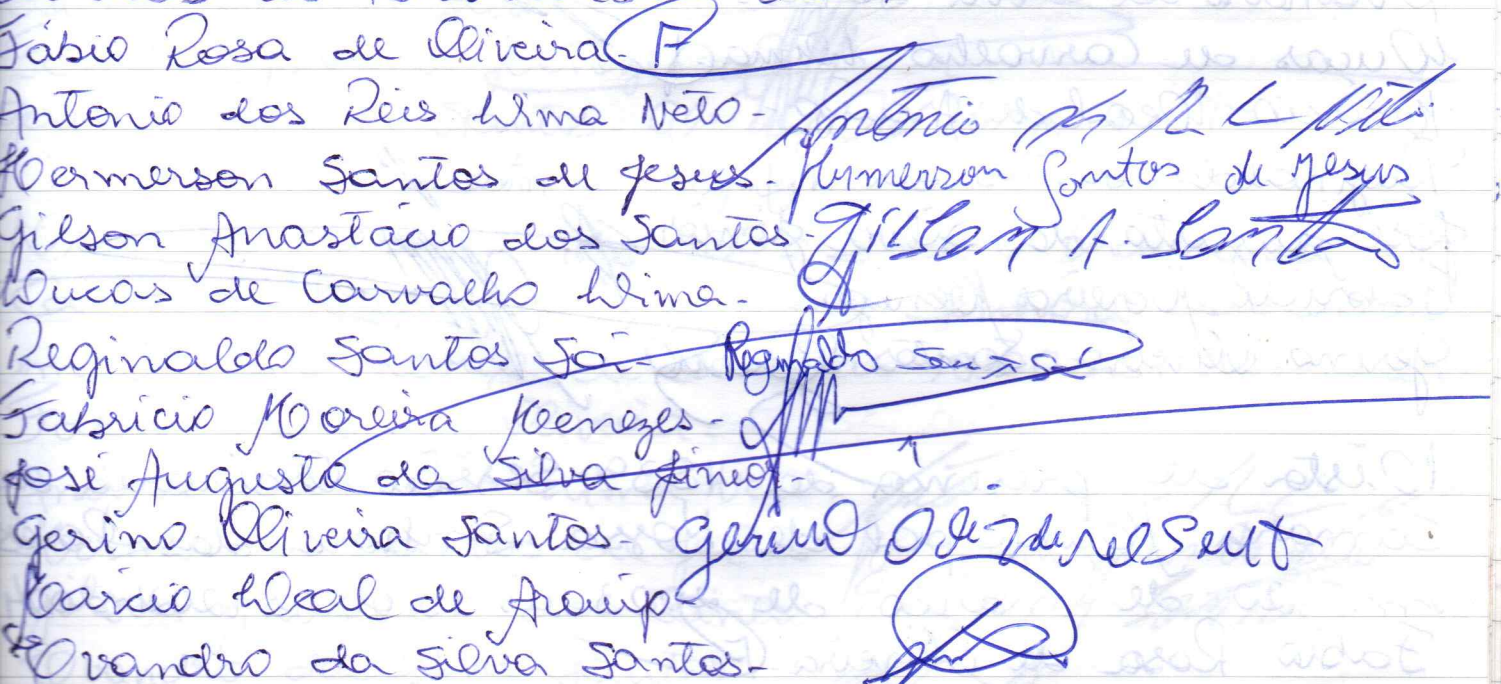 Fábio Rosa de Oliveira - F
Antonio dos Reis Lima Neto - Antônio dos R L Neto
Hermerson Santos de Jesus - Hermerson Santos de Jesus
Gilson Anastácio dos Santos - Gilson A. Santos
Lucas de Carvalho Lima -
Reginaldo Santos Sá - Reginaldo San Sá
Fabricio Moreira Menezes -
José Augusto da Silva
Gerino Oliveira Santos - Gerino
Marcio Leal de Araujo -
Evandro da Silva Santos -